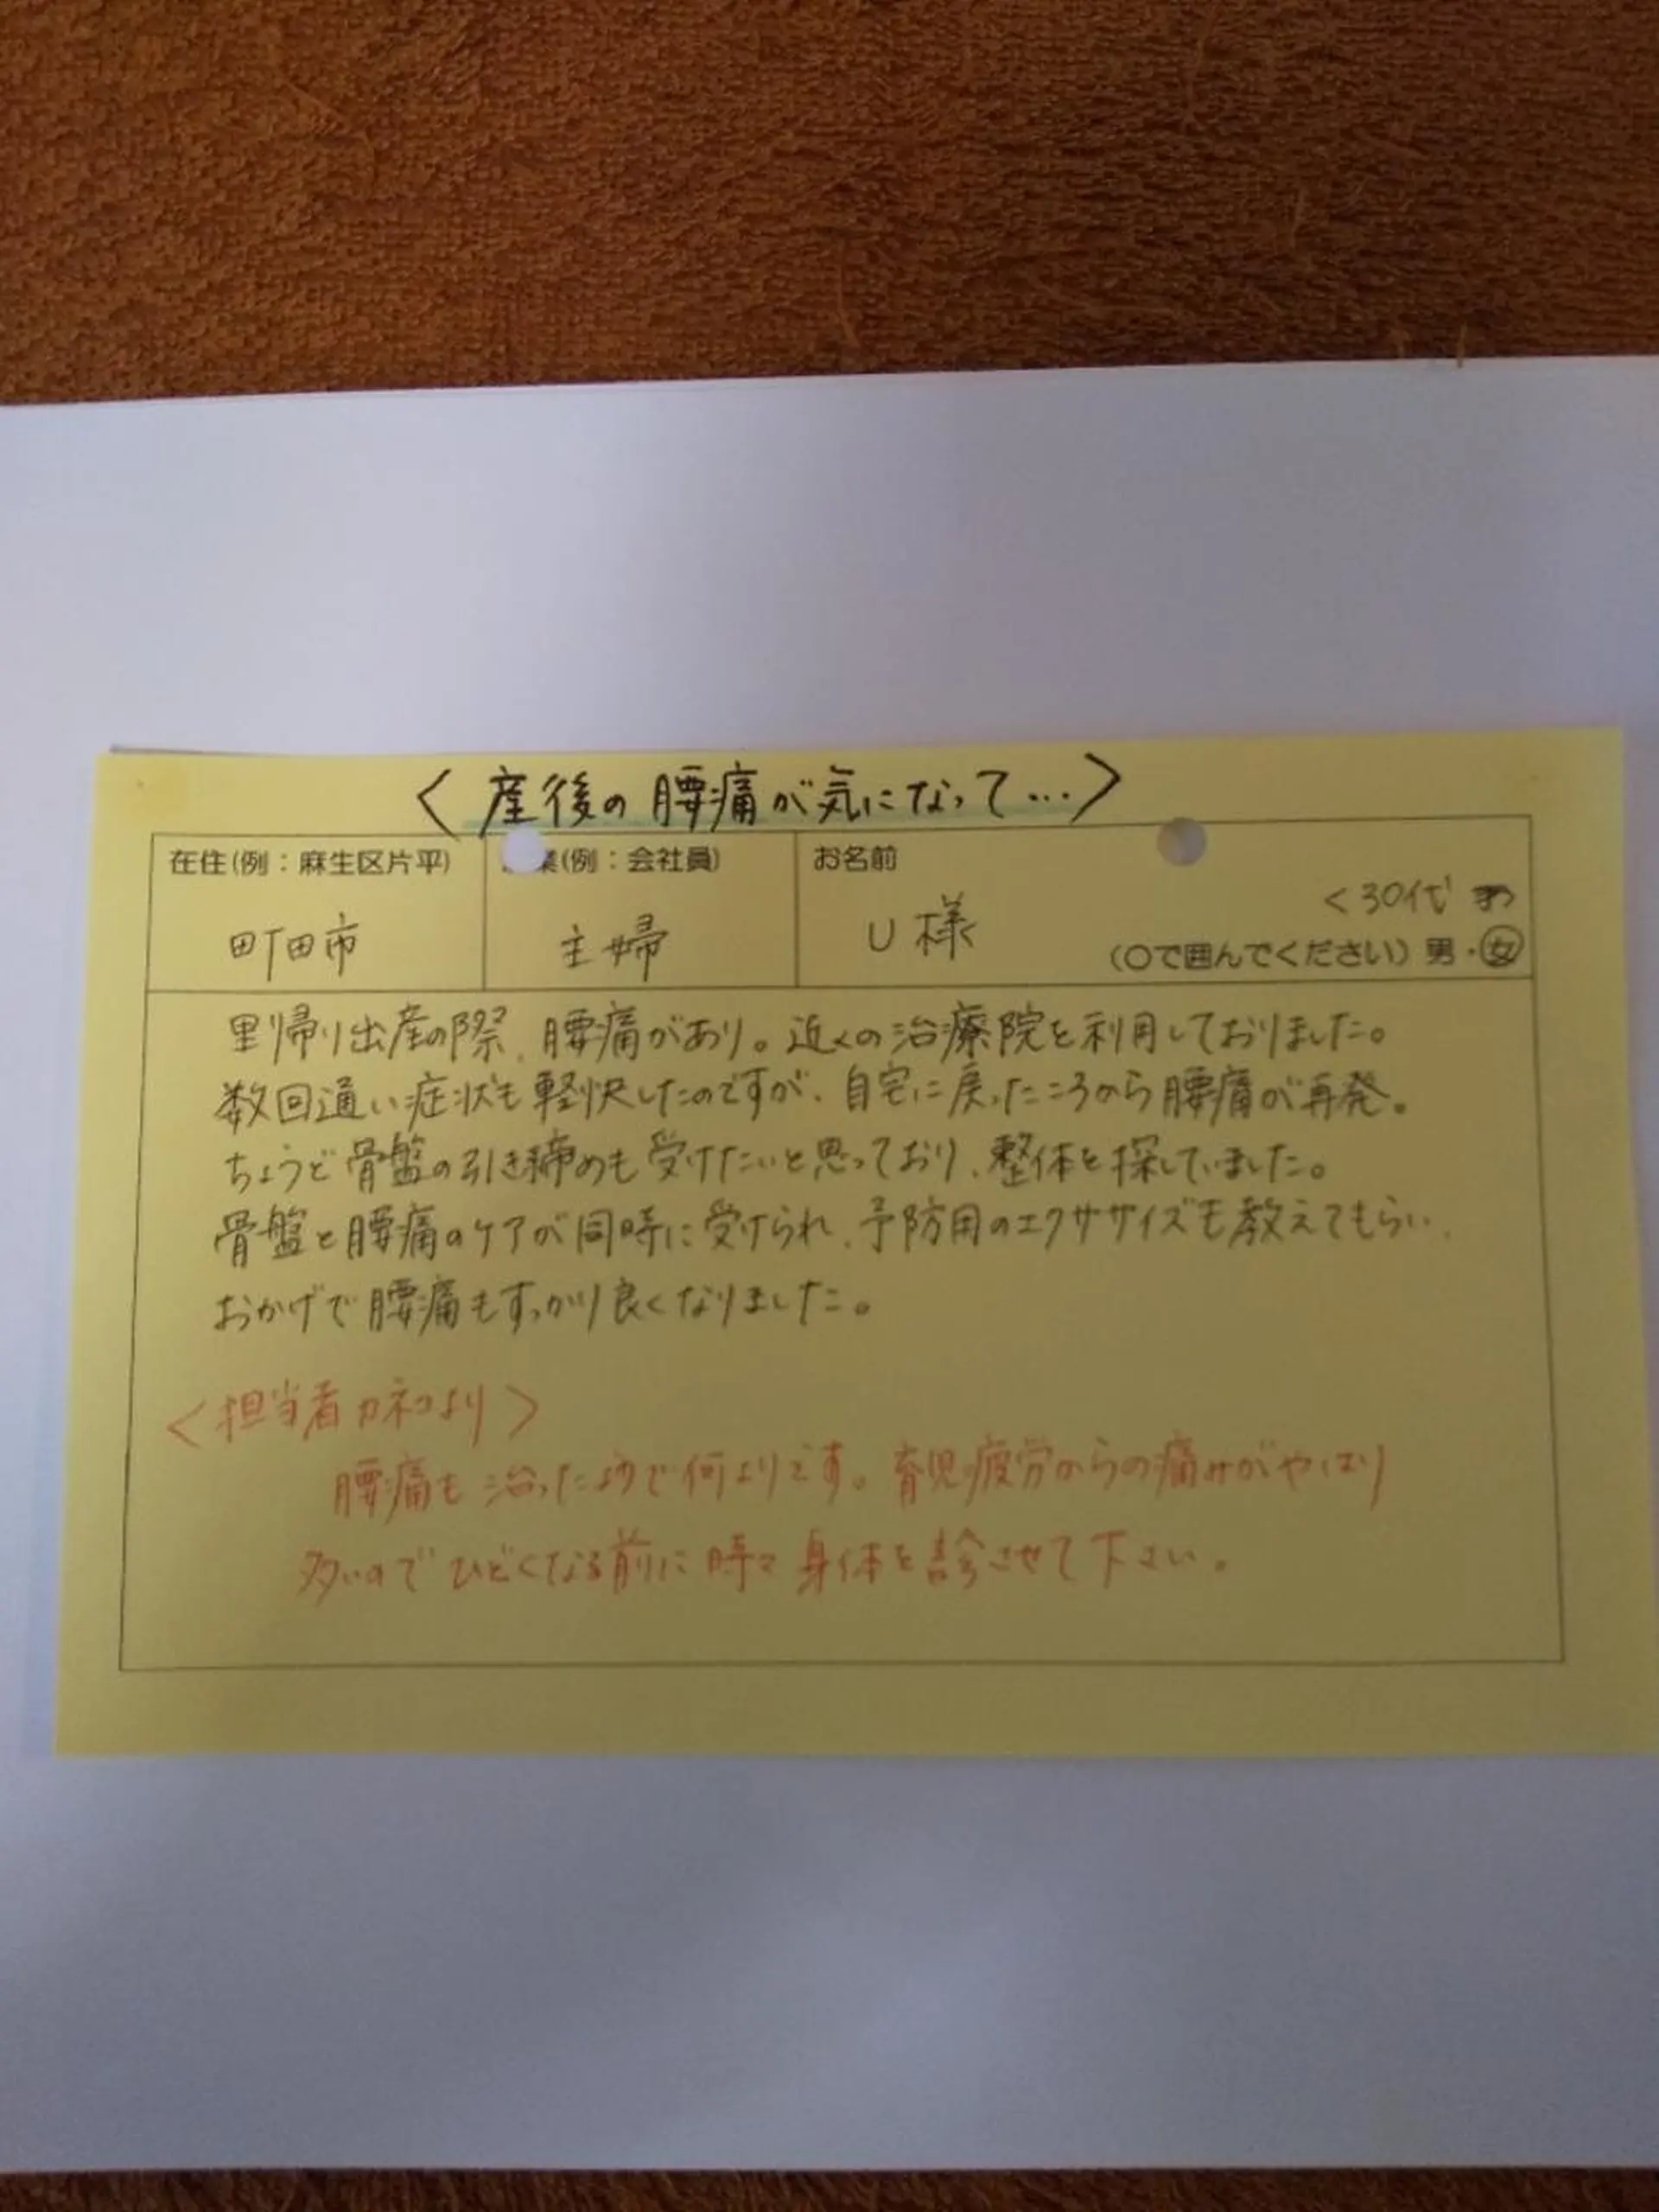 〈産後の腰痛が気になって…〉
在住(例：麻生区片平)
業(例：会社員)
お名前
町田市
主婦
U様
<30代
(○で囲んでください) 男・女
里帰り出産の際、腰痛があり。近くの治療院を利用しておりました。
数回通い症状も軽快したのですが、自宅に戻ったころから腰痛が再発。
ちょうど骨盤の引き締めも受けたいと思っており、整体を探していました。
骨盤と腰痛のケアが同時に受けられ、予防用のエクササイズも教えてもらい、
おかげで腰痛もすっかり良くなりました。
〈担当者カネコより〉
腰痛も治ったようで何よりです。育児疲労からの痛みがやはり
多いのでひどくなる前に時々身体を診させて下さい。